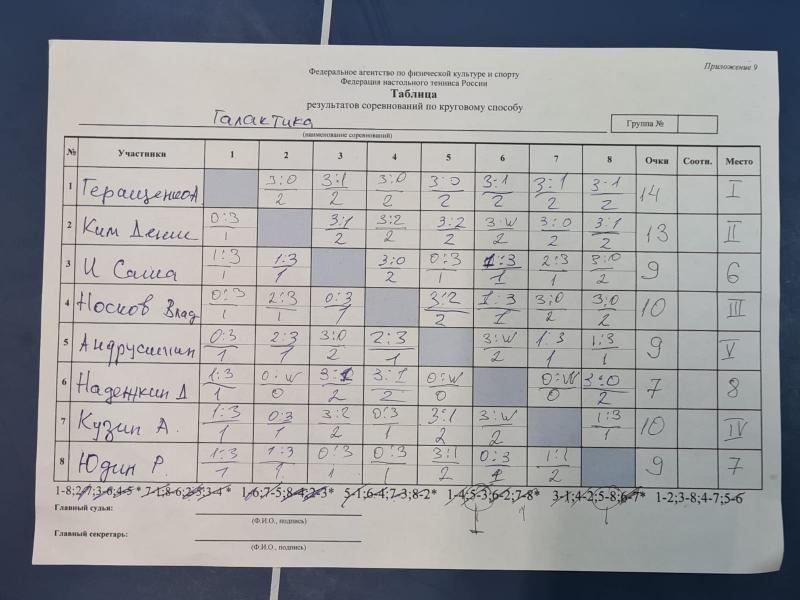 Приложение 9
Федеральное агентство по физической культуре и спорту
Федерация настольного тенниса России
Таблица
результатов соревнований по круговому способу
Галактика
(наименование соревнований)
Группа №
№ Участники 1 2 3 4 5 6 7 8 Очки Соотн. Место
1 Геращенко А 3:0 3:1 3:0 3:0 3:1 3:1 3:1 14 I
2 2 2 2 2 2 2
2 Ким Денис 0:3 3:1 3:2 3:2 3:W 3:0 3:1 13 II
1 2 2 2 2 2 2
3 И Саша 1:3 1:3 3:0 0:3 1:3 2:3 3:0 9 6
1 1 2 1 1 1 2
4 Носков Влад 0:3 2:3 0:3 3:2 1:3 3:0 3:0 10 III
1 1 1 2 1 2 2
5 0:3 2:3 3:0 2:3 3:W 1:3 1:3 9 V
1 1 2 1 2 1 1
6 Надежкин Д 1:3 0:W 3:1 3:1 0:W 0:W 3:0 7 8
1 0 2 2 0 0 2
7 Кузин А. 1:3 0:3 3:2 0:3 3:1 3:W 1:3 10 IV
1 1 2 1 2 2 1
8 Юдин Р. 1:3 1:3 0:3 0:3 3:1 0:3 9 7
1 1 1 1 2 2
1-8;2-7;3-6;4-5* 7-1;8-6;2-5;3-4* 1-6;7-5;8-4;2-3* 5-1;6-4;7-3;8-2* 1-4;5-3;6-2;7-8* 3-1;4-2;5-8;6-7* 1-2;3-8;4-7;5-6
Главный судья:
(Ф.И.О., подпись)
Главный секретарь:
(Ф.И.О., подпись)